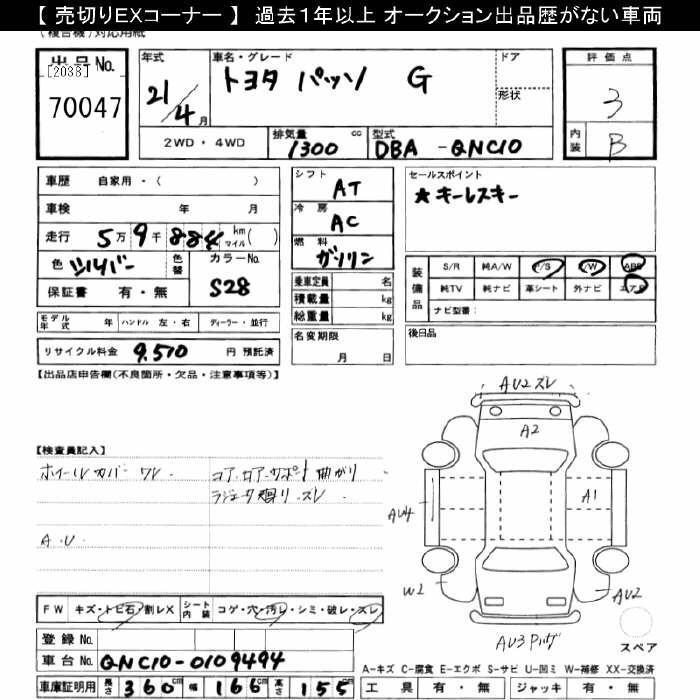 【 売切りEXコーナー 】 過去1年以上 オークション出品歴がない車両
(複合機)対応用紙
出品No.
[2038]
70047
年式
21/4月
車名・グレード
トヨタ パッソ G
ドア
形状
評価点
3
内装
B
2WD・4WD
排気量
1300 cc
型式
DBA - QNC10
車歴 自家用・( )
車検 年 月
走行 5万9千884 km マイル( )
色 シルバー
色替
カラーNo.
S28
保証書 有・無
モデル年式 年 ハンドル 左・右 ディーラー・並行
リサイクル料金 9,510 円 預託済
シフト
AT
冷房
AC
燃料
ガソリン
乗車定員 名
積載量 kg
総重量 kg
名変期限
月 日
セールスポイント
★キーレスキー
装備品
S/R 純A/W P/S P/W ABS
純TV 純ナビ 革シート 外ナビ エアB
ナビ型番:
後日品
【出品店申告欄(不良箇所・欠品・注意事項等)】
【検査員記入】
ホイールカバー ワレ
コアサポート 曲がり
ラジエタ廻り スレ
A.U
AU2 スレ
A2
A1
AU4
W2
AU2
AU3
スペア
FW キズ・トビ石・割レX
シート内装 コゲ・穴・汚レ・シミ・破レ・スレ
登録No.
車台No. QNC10-0109494
車庫証明用 長さ 360 幅 166 高さ 155
A-キズ C-腐食 E-エクボ S-サビ U-凹ミ W-補修 XX-交換済
工具 有・無 ジャッキ 有・無